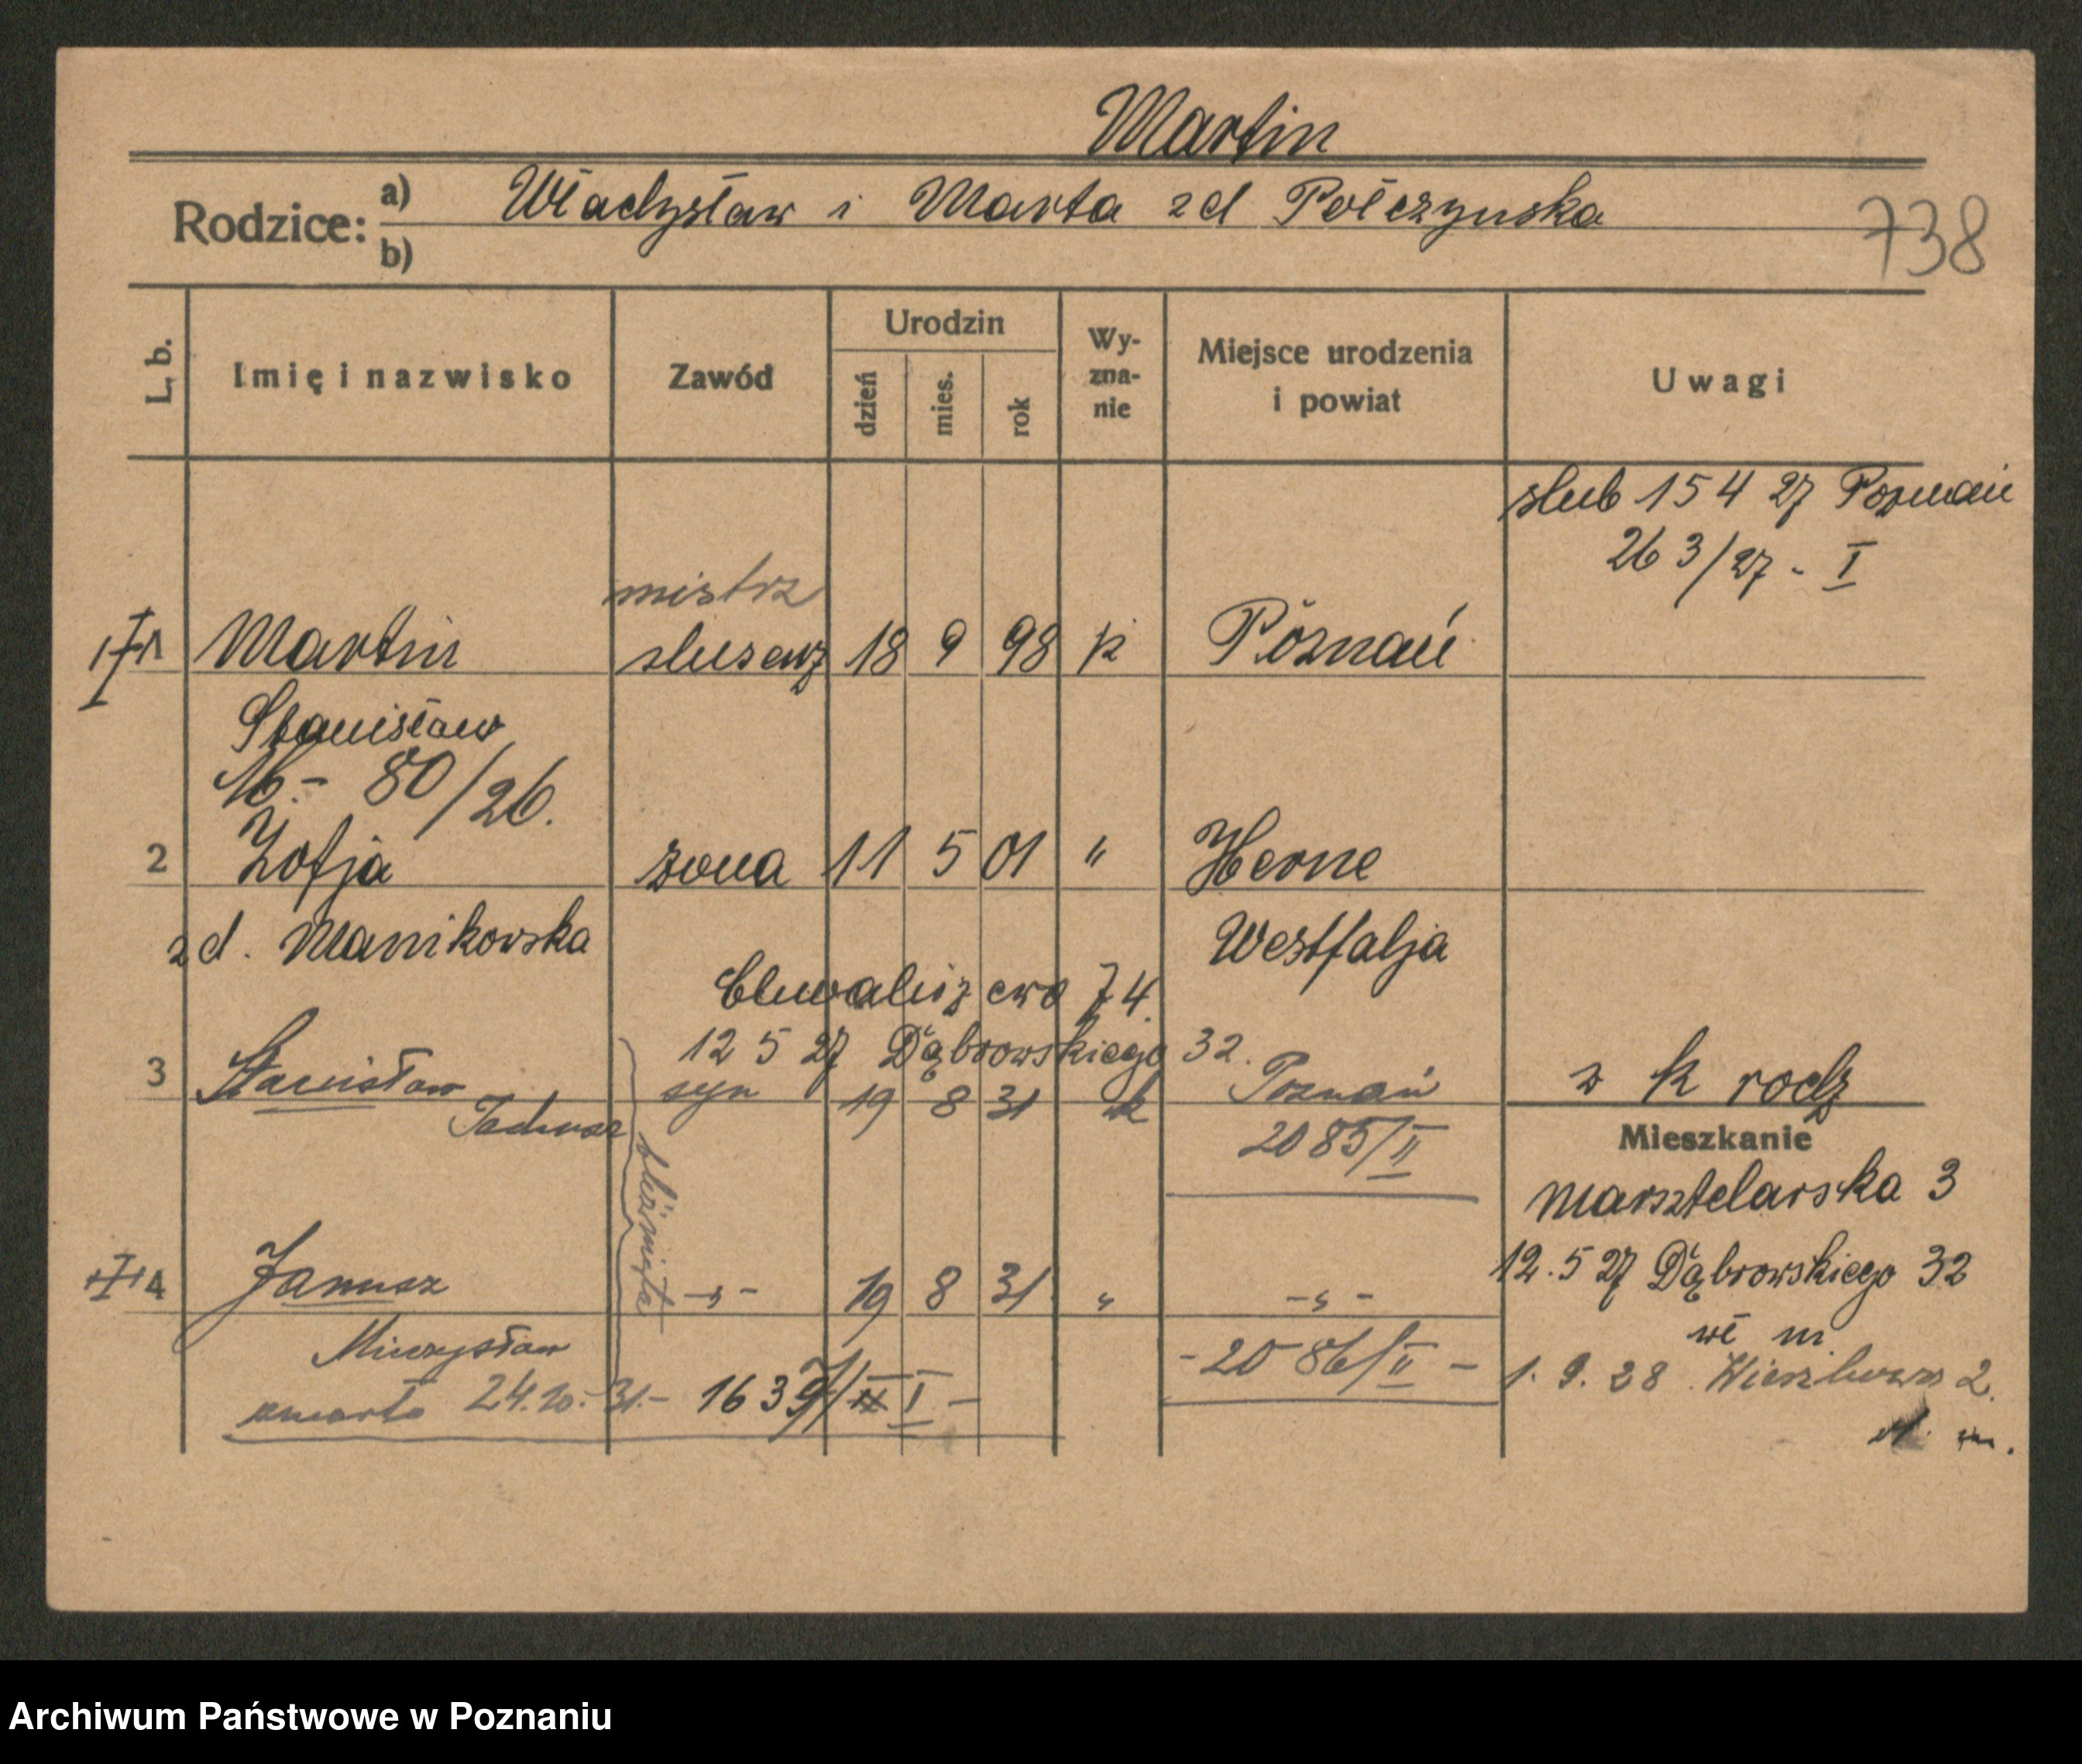 Martin
Rodzice: a) Władysław i Marta zd Połczynska
b)
738
L. b. Imię i nazwisko Zawód Urodzin dzień mies. rok Wy-zna-nie Miejsce urodzenia i powiat Uwagi
slub 15 4 27 Poznań
263/27 - I
mistrz
1 Martin slusarz 18 9 98 k Poznań
Stanisław
16.- 80/26.
2 Zofja zona 11 5 01 " Herne
zd. Manikowska Westfalja
Chwaliszewo 74.
12 5 27 Dąbrowskiego 32.
3 Stanisław syn 19 8 31 rk Poznań z k rodz
Tadeusz 2085/II
Mieszkanie
bliźnięta
Marsztelarska 3
4 Janusz -„- 19 8 31 „ -„-
12.5 27 Dąbrowskiego 32
wł m.
Mieczysław -2086/II-
1. 9. 28. 2.
zmarło 24.10.-31.- 1639/II I -
m.
Archiwum Państwowe w Poznaniu